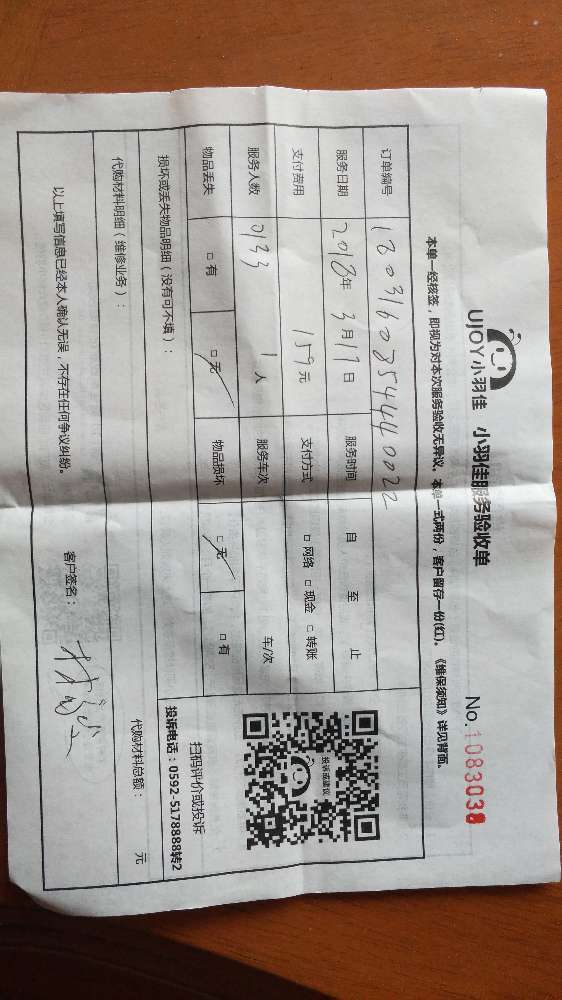 UJOY小羽佳 小羽佳服务验收单 No.1083038
本单一经核签，即视为对本次服务验收无异议，本单一式两份，客户留存一份(红)。《维保须知》详见背面。
订单编号 18031603544440022
服务日期 2018年3月17日 服务时间 自 至 止
支付费用 159元 支付方式 □ 网络 □ 现金 □ 转账
服务人数 0133 1人 服务车次 车/次
物品丢失 □ 有 □ 无 物品损坏 □ 无 □ 有
损坏或丢失物品明细（没有可不填）：
代购材料明细（维修业务）： 代购材料总额： 元
以上填写信息已经本人确认无误，不存在任何争议纠纷。 客户签名：
投诉或建议
扫码评价或投诉
投诉电话：0592-5178888转2